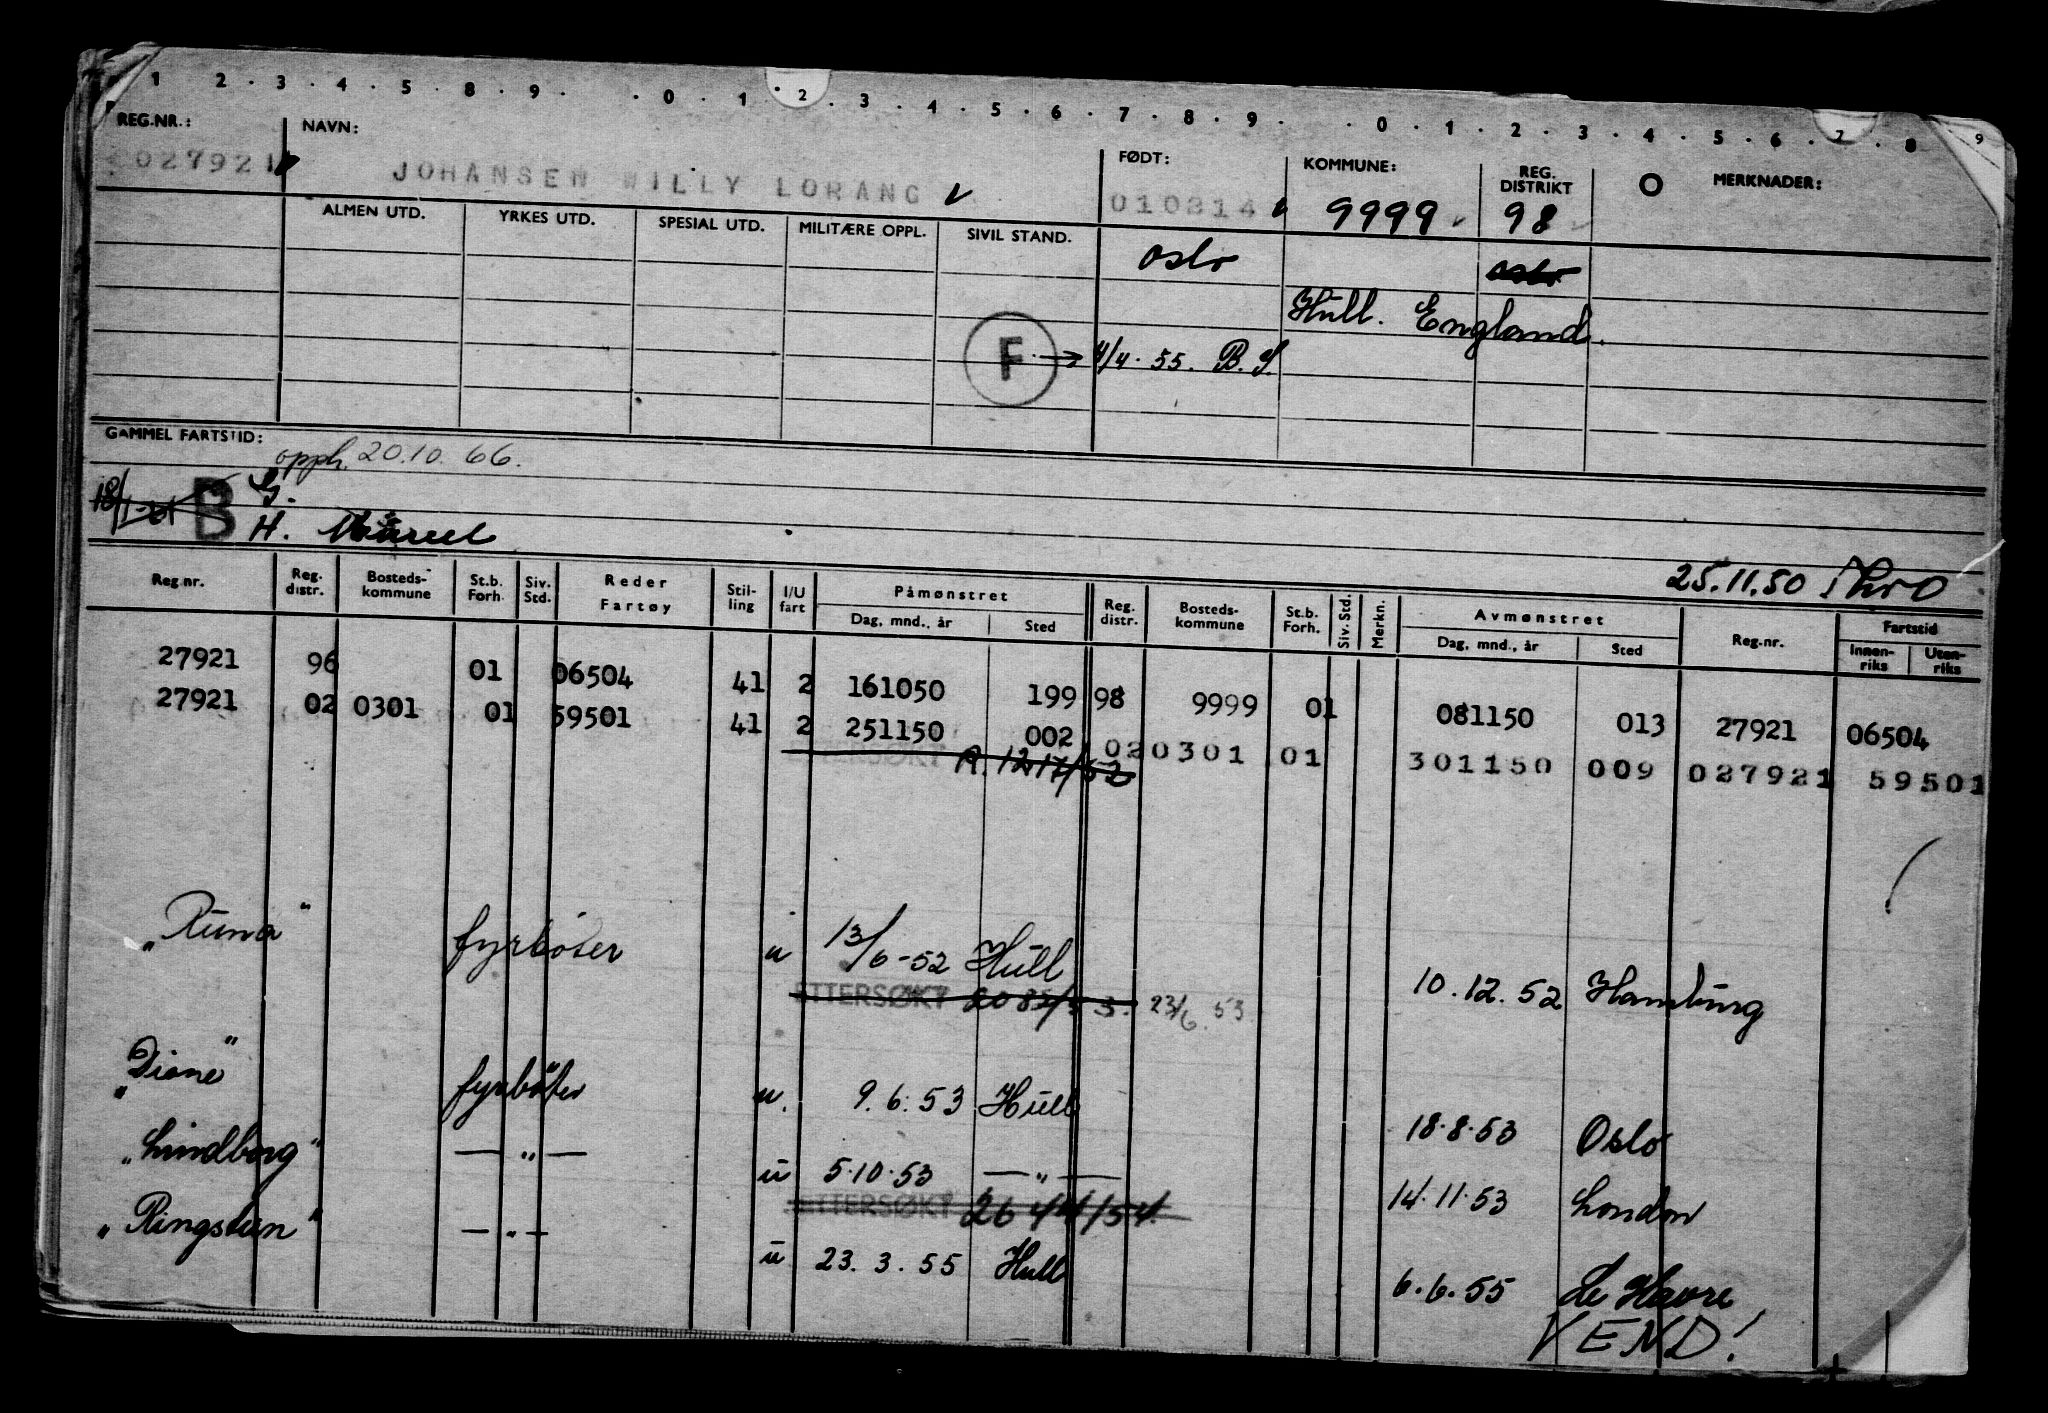 1 2 · 3 · 4 · 5 · 8 · 9 · · 0 · 1 · 2 · 3 · 4 · 5 · 6 · 7 · 8 · 9 · · 0 · 1 · 2 · 3 · 4 · 5 · 6 · 7 · 8 9
REG.NR.: NAVN: FØDT: KOMMUNE: REG. DISTRIKT O MERKNADER:
027921 JOHANSEN WILLY LORANG 010814 9999 98
ALMEN UTD. YRKES UTD. SPESIAL UTD. MILITÆRE OPPL. SIVIL STAND.
Oslo Oslo
Hull. England.
F → 4/4. 55. B.S.
GAMMEL FARTSTID:
opph. 20.10. 66.
18/1-61 B G.
H.
25.11.50
Reg.nr. Reg. distr. Bosteds-kommune St.b. Forh. Siv. Std. Reder Fartøy Stil-ling I/U fart Påmønstret Reg. distr. Bosteds-kommune St.b. Forh. Siv. Std. Merkn. Avmønstret Reg.nr. Fartstid
Dag, mnd., år Sted Dag, mnd., år Sted Innen-riks Uten-riks
27921 96 01 06504 41 2 161050 199 98 9999 01 081150 013 27921 06504
27921 02 0301 01 59501 41 2 251150 002 02 0301 01 301150 009 027921 59501
ETTERSØKT A. 1217/52
"Runa" fyrbøter u 13/6-52 Hull 10.12.52 Hamburg
ETTERSØKT 23/6. 53
"Diane" fyrbøter u. 9.6.53 Hull 18.8.53 Oslo
"Lindborg" — " — u 5.10.53 — " — 14.11.53 London
ETTERSØKT 2644/54.
"Ringstein" — " — u 23.3.55 Hull 6.6.55 Le Havre
VEND!